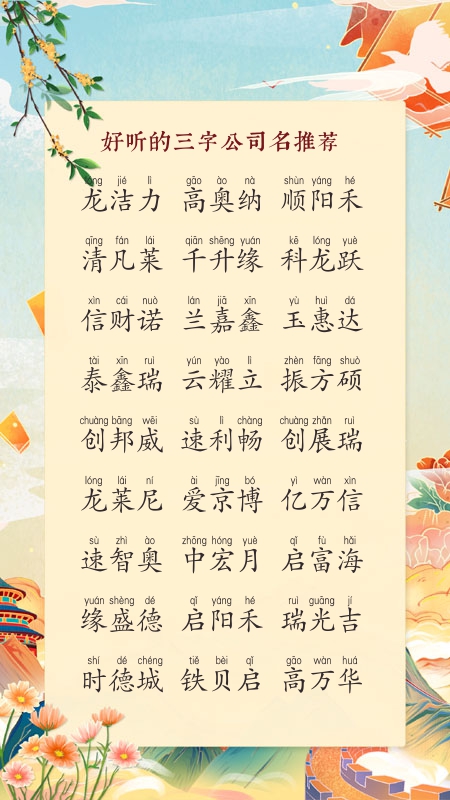 好听的三字公司名推荐
lóng jié lì gāo ào nà shùn yáng hé
龙洁力 高奥纳 顺阳禾
qīng fán lái qiān shēng yuán kē lóng yuè
清凡莱 千升缘 科龙跃
xìn cái nuò lán jiā xīn yù huì dá
信财诺 兰嘉鑫 玉惠达
tài xīn ruì yún yào lì zhèn fāng shuò
泰鑫瑞 云耀立 振方硕
chuàng bāng wēi sù lì chàng chuàng zhǎn ruì
创邦威 速利畅 创展瑞
lóng lái ní ài jīng bó yì wàn xìn
龙莱尼 爱京博 亿万信
sù zhì ào zhōng hóng yuè qǐ fù hǎi
速智奥 中宏月 启富海
yuán shèng dé qǐ yáng hé ruì guāng jí
缘盛德 启阳禾 瑞光吉
shí dé chéng tiě bèi qǐ gāo wàn huá
时德城 铁贝启 高万华